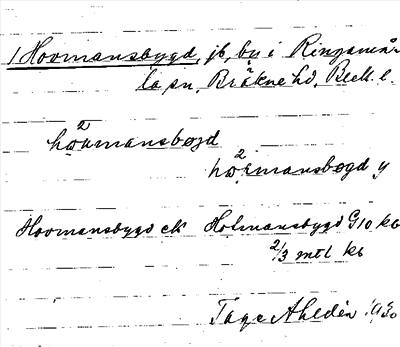 1 Hovmansbygd, jb, by i Ringamå-
la sn, Bräkne hd, Blek. l.
2
hovmansbogd
2
hovmansbogd y
Hovmansbygd ek Holmansbygd G10 kb
2/3 mtl kb
Tage Ahldén 1930